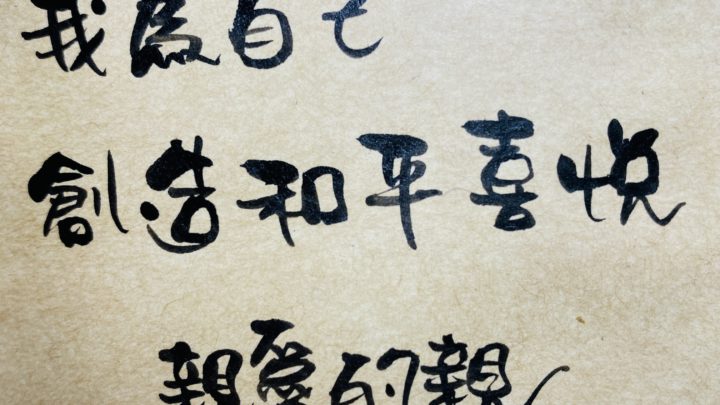 我為自己
創造和平喜悅
親愛的親